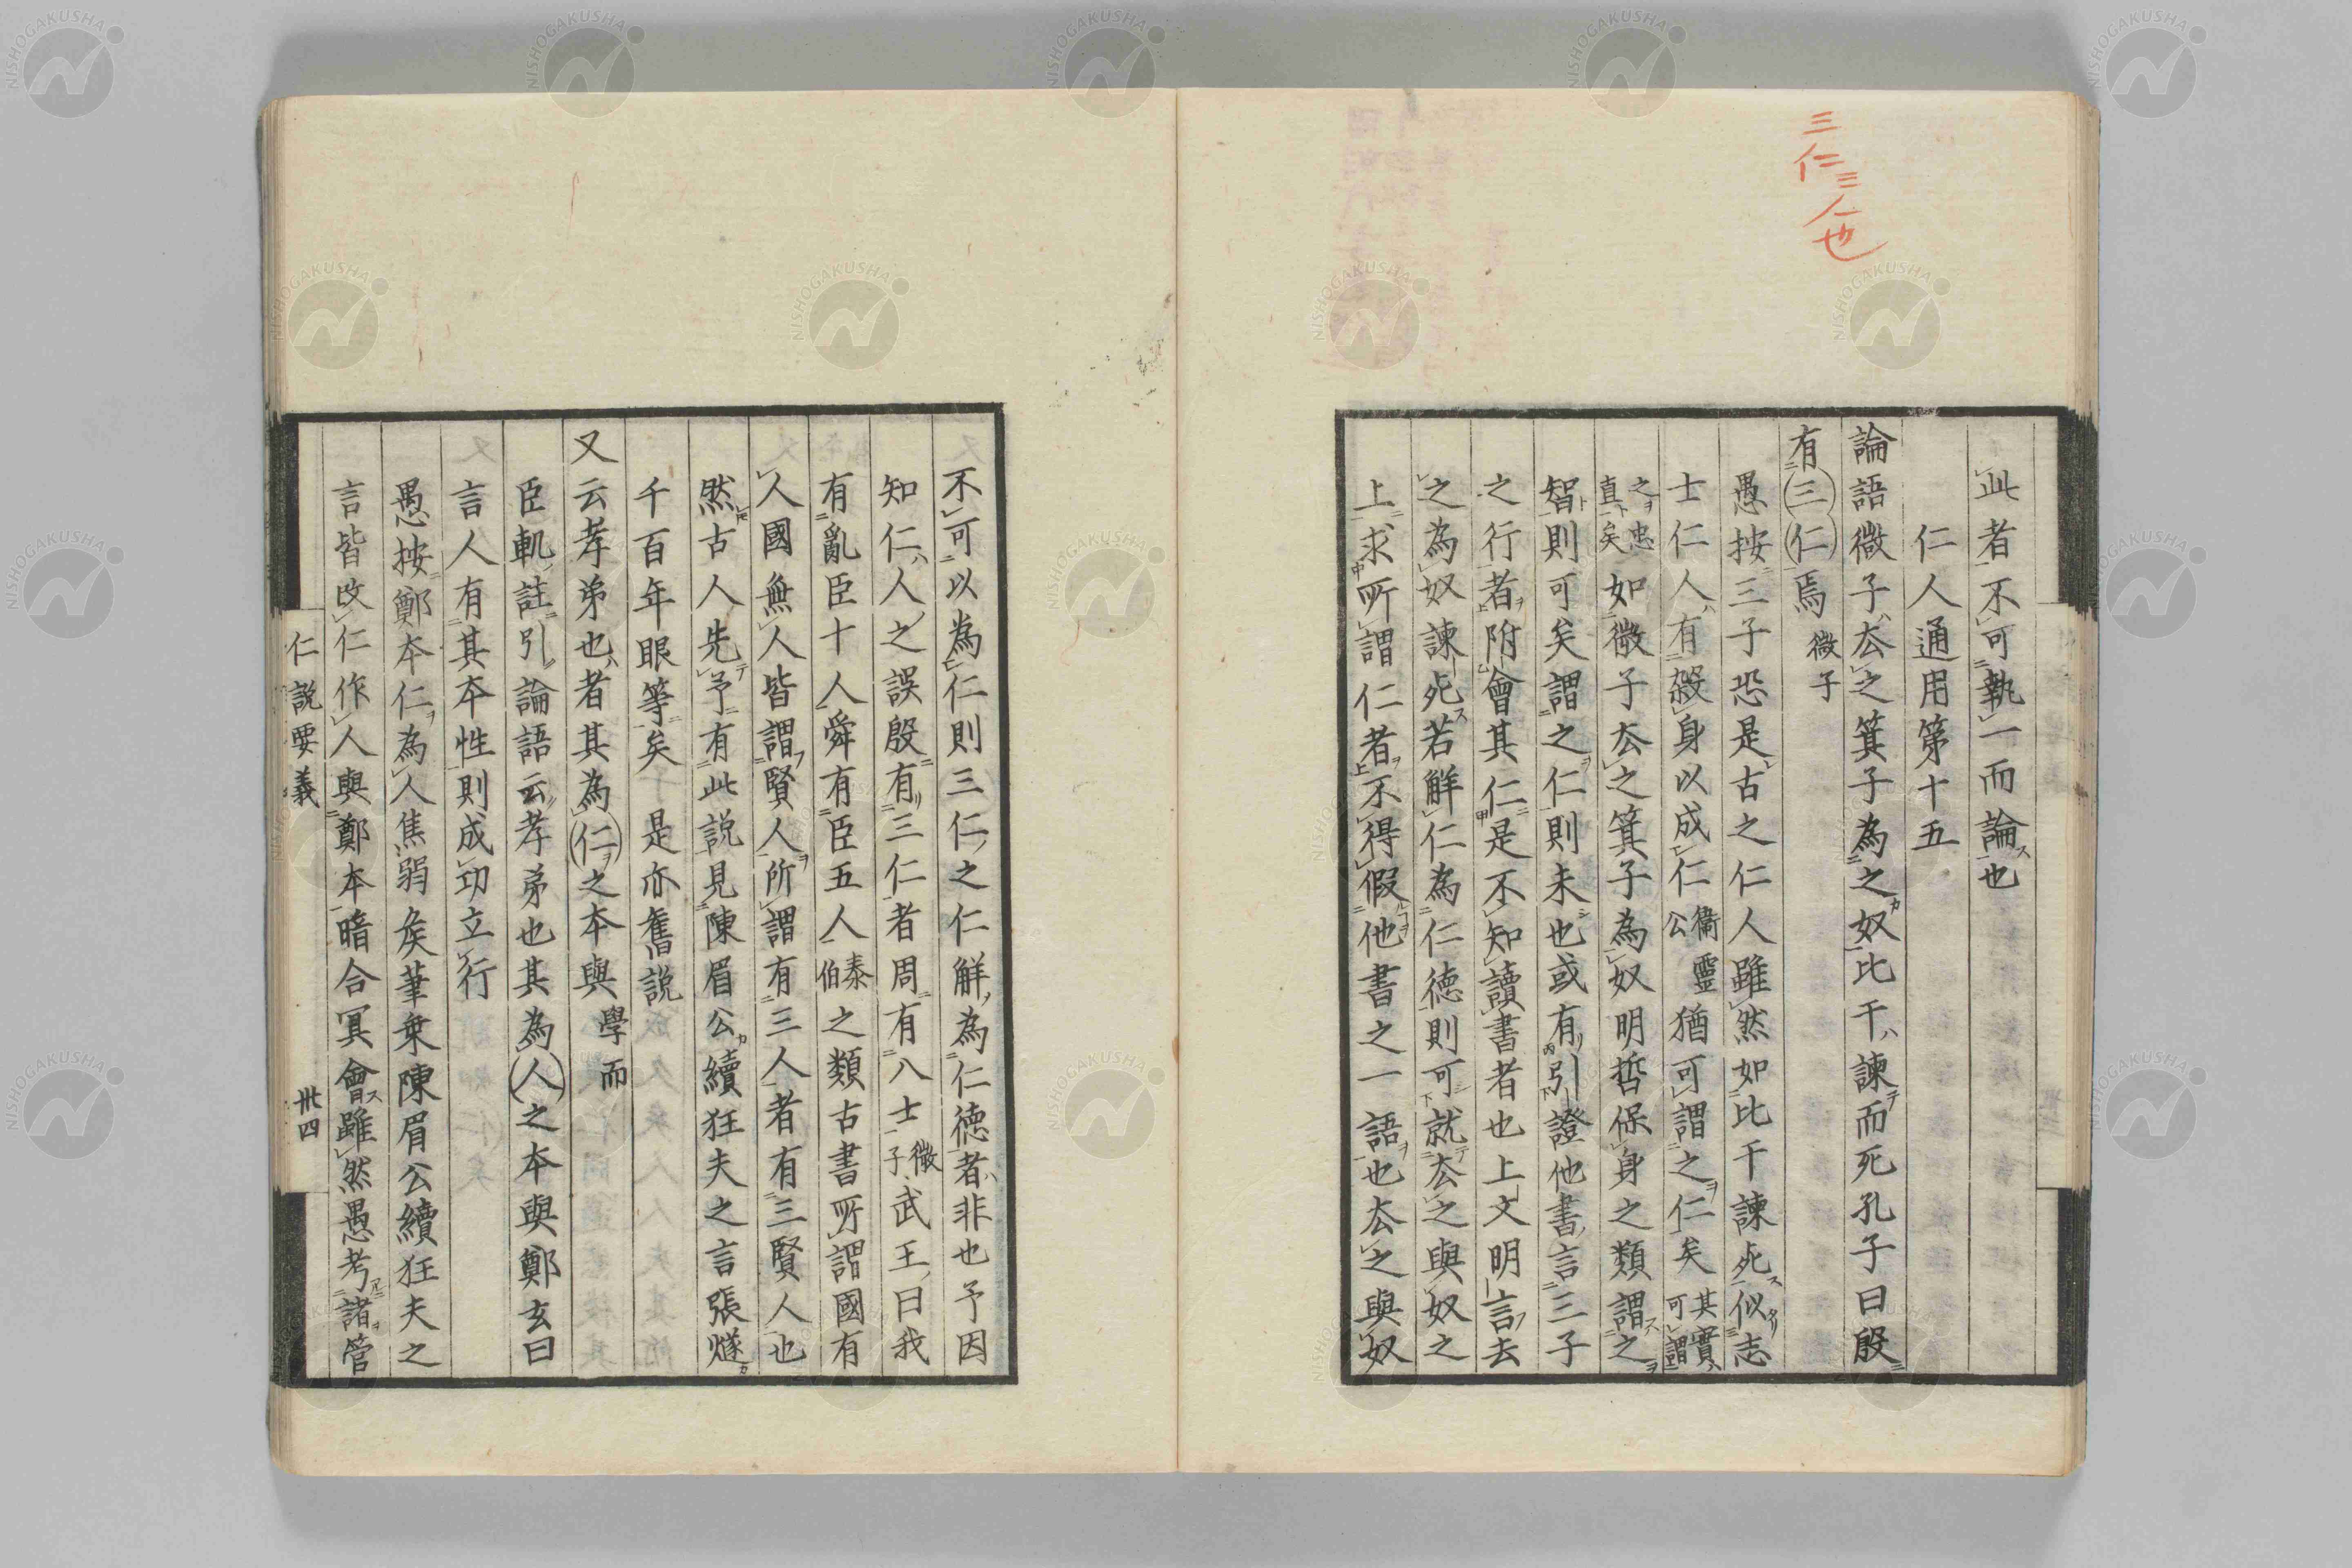 三仁三人也
此者不可執一而論也
仁人通用第十五
論語微子去之箕子為之奴比干諫而死孔子曰殷
有三仁焉 微子
愚按三子恐是古之仁人雖然如比干諫死似志
士仁人有殺身以成仁 衞靈公 猶可謂之仁矣 其實可謂
之忠直矣 如微子去之箕子為奴明哲保身之類謂之
智則可矣謂之仁則未也或有引證他書言三子
之行者附會其仁是不知讀書者也上文明言去
之為奴諫死若解仁為仁德則可就去之與奴之
上求所謂仁者不得假他書之一語也去之與奴
不可以為仁則三仁之仁解為仁德者非也予因
知仁人之誤殷有三仁者周有八士 微子 武王曰我
有亂臣十人舜有臣五人 泰伯 之類古書所謂國有
人國無人皆謂賢人所謂有三人者有三賢人也
然古人先予有此說見陳眉公續狂夫之言張燧
千百年眼等矣 是亦舊説
又云孝弟也者其為仁之本與 學而
臣軌註引論語云孝弟也其為人之本與鄭玄曰
言人有其本性則成功立行
愚按鄭本仁為人焦弱侯筆乗陳眉公續狂夫之
言皆改仁作人與鄭本暗合冥會雖然愚考諸管
仁説要義
卅四
NISHOGAKUSHA